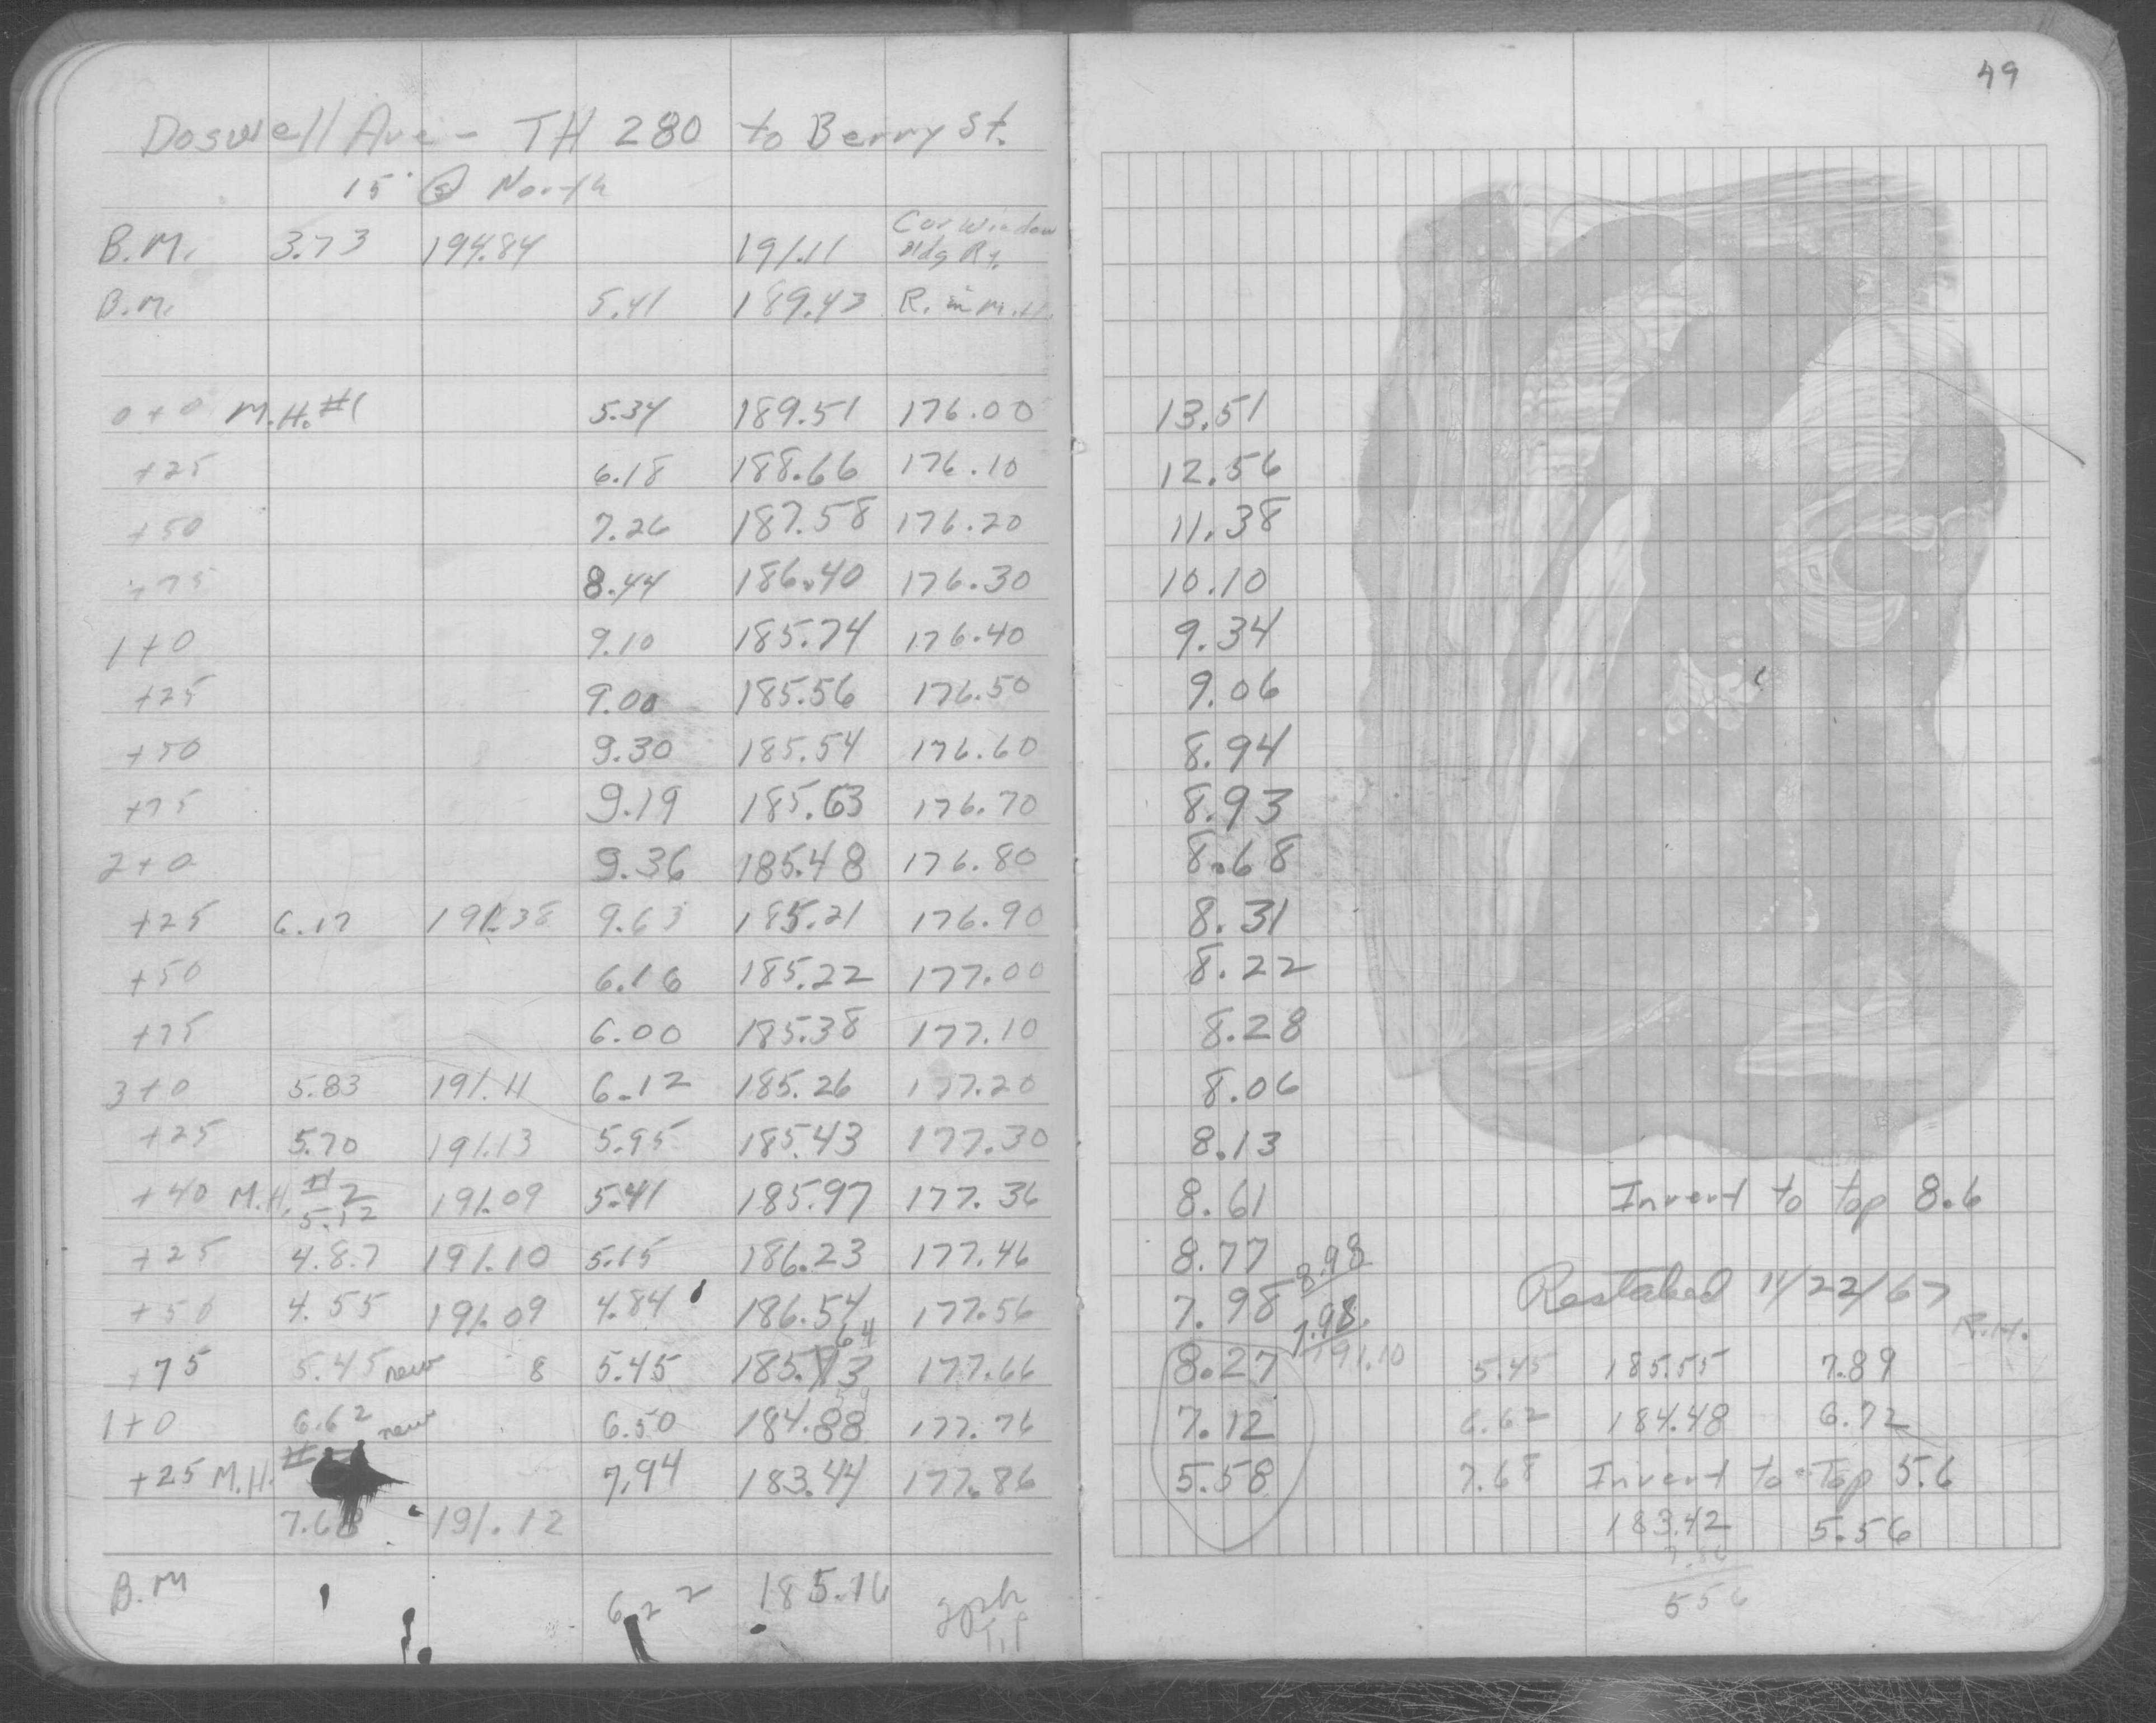 49
Doswell Ave - TH 280 to Berry St.
15' Ⓢ North
B.M. 3.73 194.84 191.11 Cor Window Bldg Rt.
B.M. 5.41 189.43 R. in M.H.
0+0 M.H. #1 5.34 189.51 176.00 13.51
+25 6.18 188.66 176.10 12.56
+50 7.26 187.58 176.20 11.38
+75 8.44 186.40 176.30 10.10
1+0 9.10 185.74 176.40 9.34
+25 9.00 185.56 176.50 9.06
+50 9.30 185.54 176.60 8.94
+75 9.19 185.63 176.70 8.93
2+0 9.36 185.48 176.80 8.68
+25 6.17 191.38 9.63 185.21 176.90 8.31
+50 6.16 185.22 177.00 8.22
+75 6.00 185.38 177.10 8.28
3+0 5.83 191.11 6.12 185.26 177.20 8.06
+25 5.70 191.13 5.95 185.43 177.30 8.13
+40 M.H. #2 5.12 191.09 5.41 185.97 177.36 8.61 Invert to top 8.6
+25 4.87 191.10 5.15 186.23 177.46 8.77 8.98
+50 4.55 191.09 4.84 186.54 177.56 7.98 7.98 Restabed 11/22/67
R.H.
+75 5.45 new 8 5.45 185.73 64 177.66 8.27 191.10 5.45 185.55 7.89
1+0 6.62 new 6.50 184.88 177.76 7.12 6.62 184.48 6.72
+25 M.H. # 7.94 183.44 177.86 5.58 7.68 Invert to Top 5.6
7.68 191.12 183.42 5.56
556
B.M 6.22 185.16